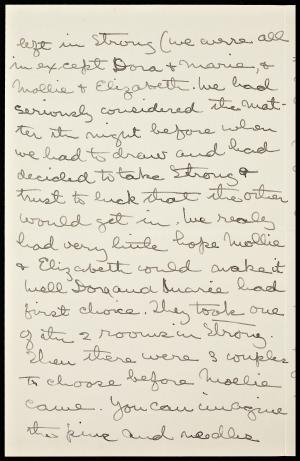 left in Strong (we were all
in except Dora & Marie, &
Mollie & Elizabeth. We had
seriously considered the mat-
ter the night before when
we had to draw and had
decided to take Strong &
& trust to luck that the other
would get in. We realy
had very little hope Mollie
& Elizabeth could make it
Well Dora and Marie had
first choice. They took one
of the 2 rooms in Strong.
Then there were 3 couples
to choose before Mollie
came. You can imagine
the pins and needles